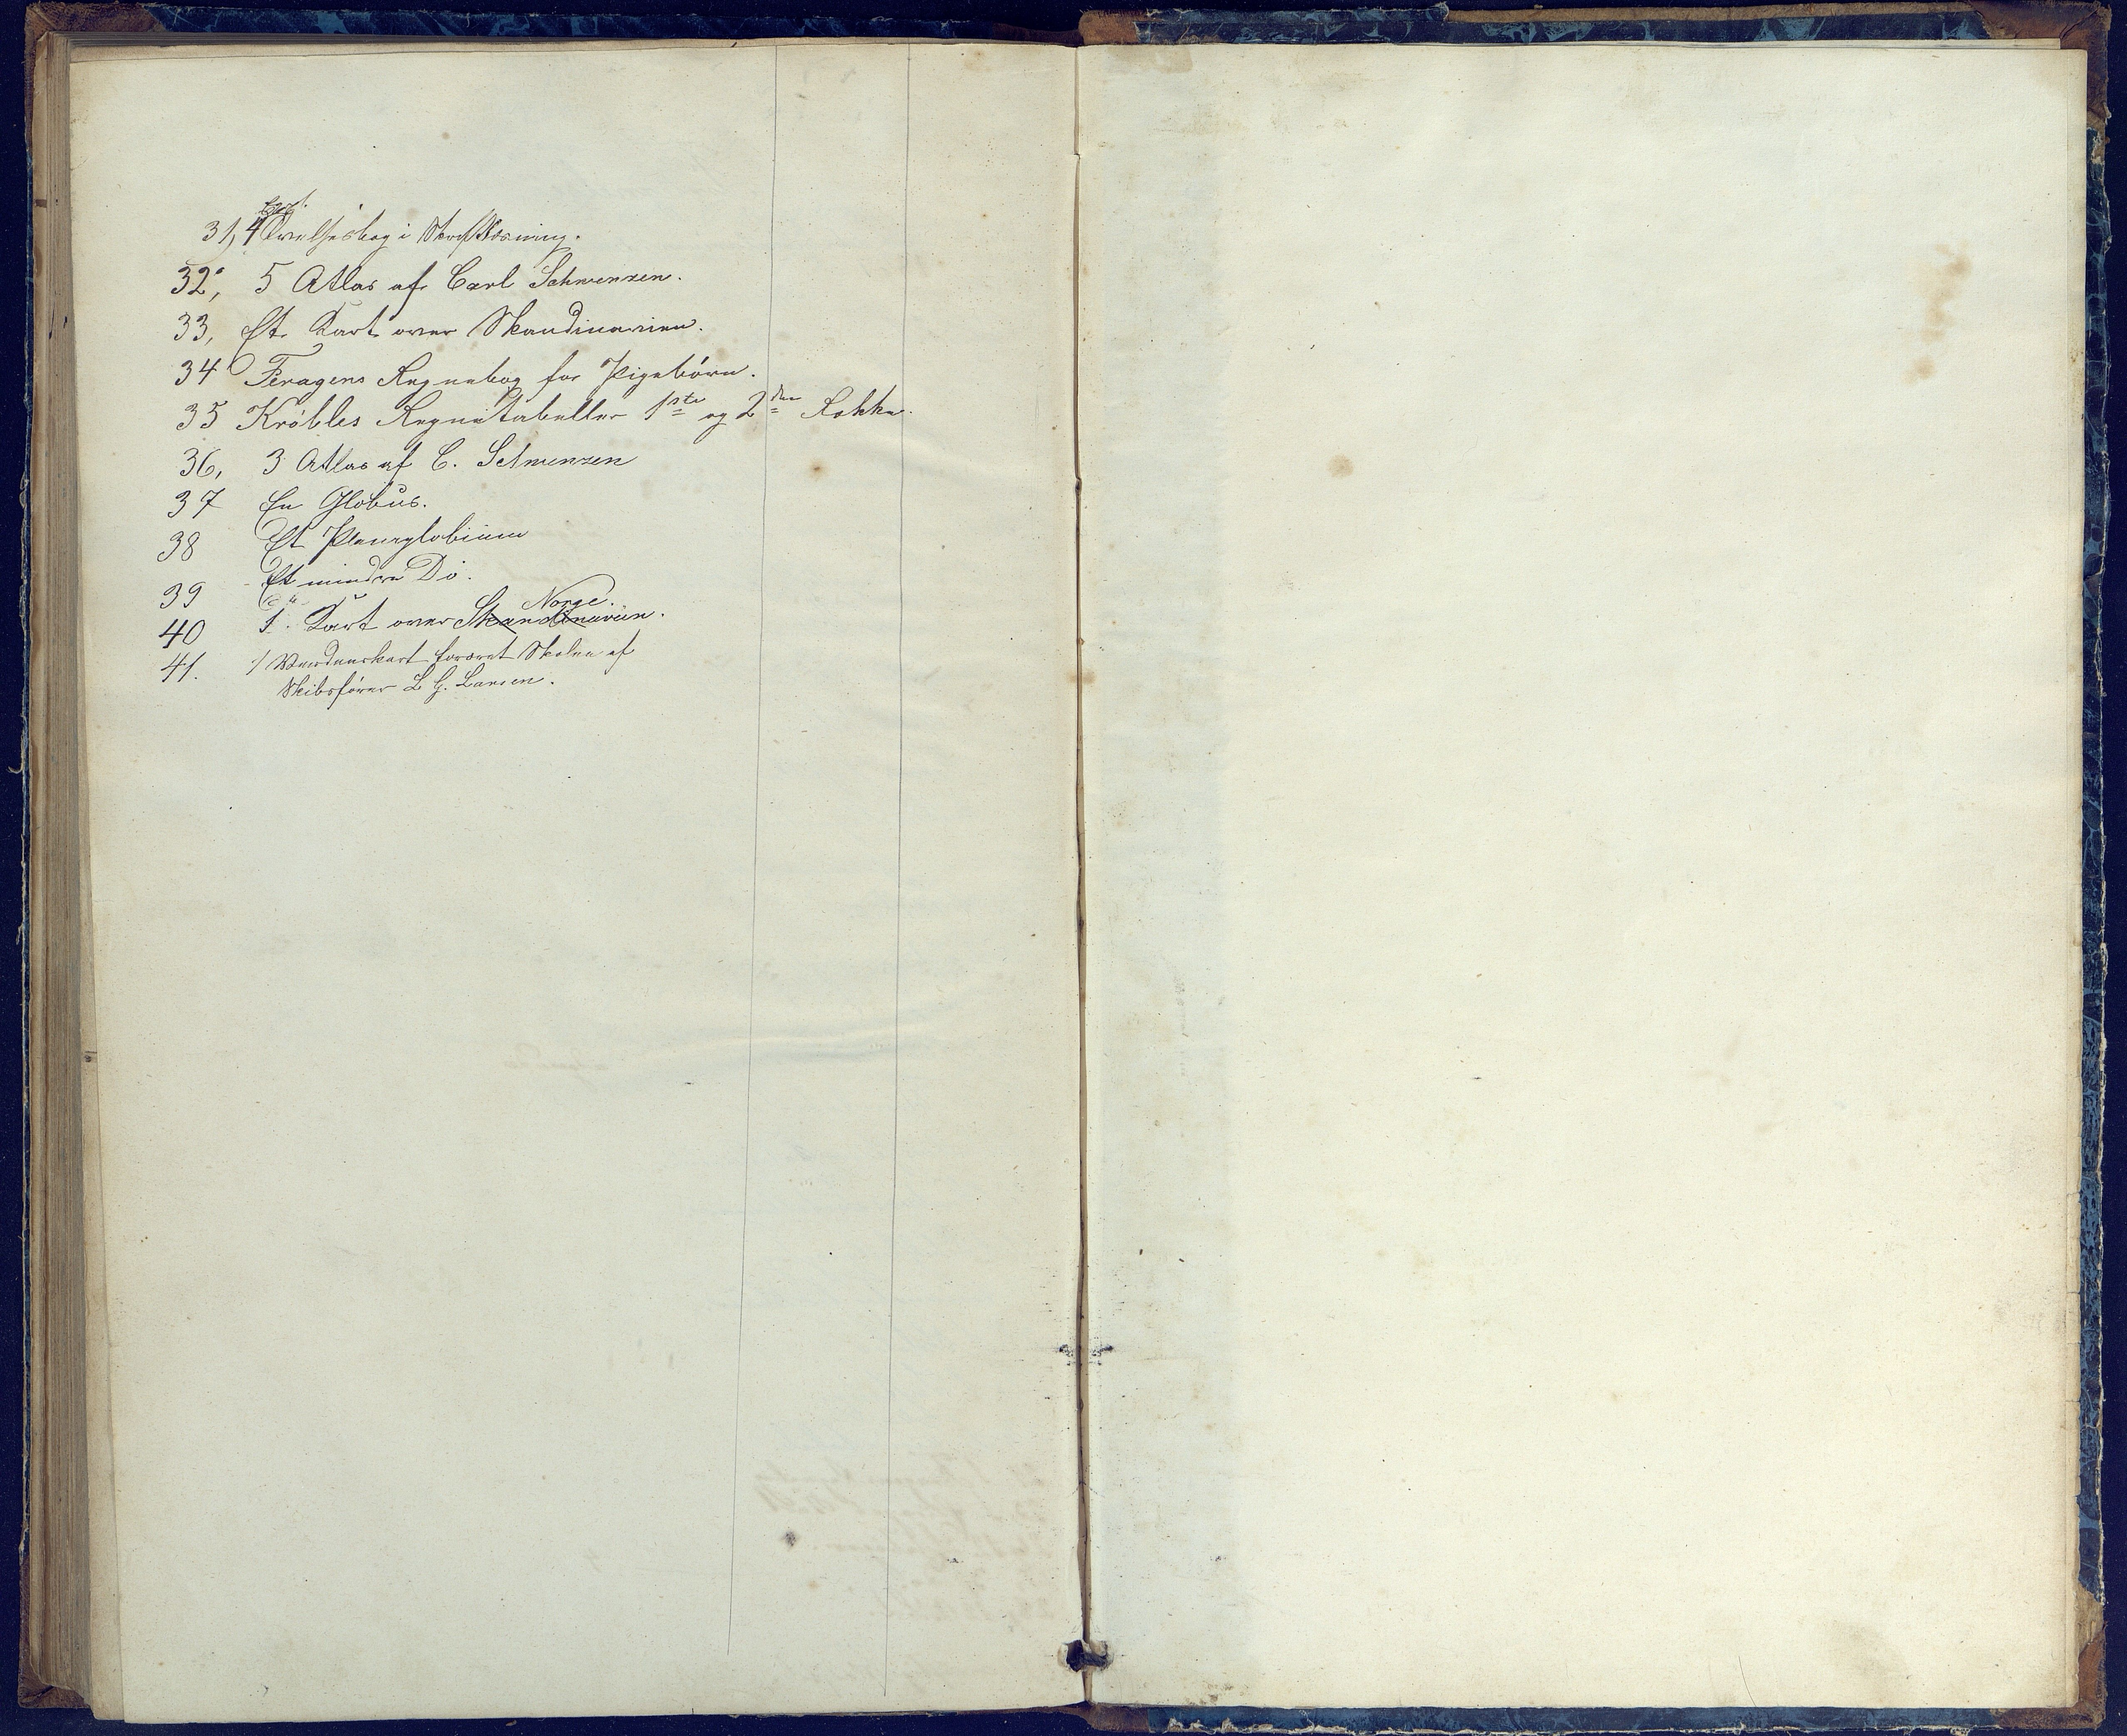 Expl.
31, 4 Øvelsesbog i Skriftlæsning.
32, 5 Atlas af Carl Schwenzen.
33, Et Kart over Skandinavien.
34 Feragens Regnebog for Pigebørn.
35 Kröbles Regnetabeller 1ste og 2den Række.
36, 3 Atlas af C. Schwenzen
37 En Globus.
38 Et Planiglobium
39 Et mindre Do.
Norge.
40 1. Kart over Skandinavien.
41. 1 Verdenskart foræret Skolen af
Skibsfører L G. Larsen.